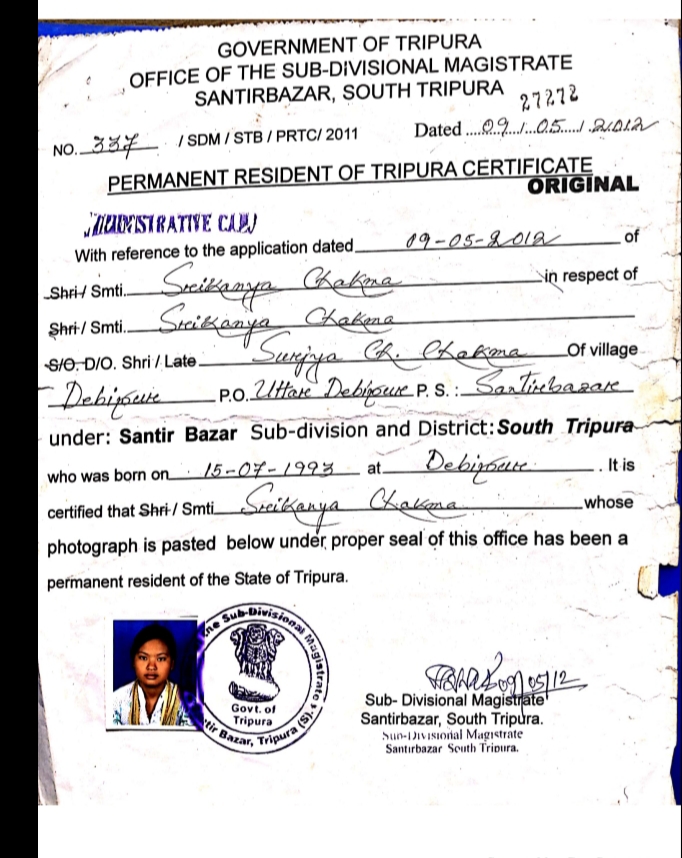 GOVERNMENT OF TRIPURA
OFFICE OF THE SUB-DIVISIONAL MAGISTRATE
SANTIRBAZAR, SOUTH TRIPURA
27272
NO. 337 / SDM / STB / PRTC/ 2011 Dated ....09../..05..../.2012
PERMANENT RESIDENT OF TRIPURA CERTIFICATE
ORIGINAL
With reference to the application dated 09-05-2012 of
Shri / Smti. Sreikanya Chakma in respect of
Shri / Smti. Sreikanya Chakma
S/O. D/O. Shri / Late Surejya Ch. Chakma Of village
Debipure P.O. Uttare Debipure P. S. : Santirebazare
under: Santir Bazar Sub-division and District: South Tripura
who was born on 15-07-1993 at Debipure . It is
certified that Shri / Smti Sreikanya Chakma whose
photograph is pasted below under proper seal of this office has been a
permanent resident of the State of Tripura.
the Sub-Divisional Magistrate
Govt. of
Tripura
Santir Bazar, Tripura (S)
09/05/12
Sub- Divisional Magistrate
Santirbazar, South Tripura.
Sub-Divisional Magistrate
Santirbazar South Tripura.